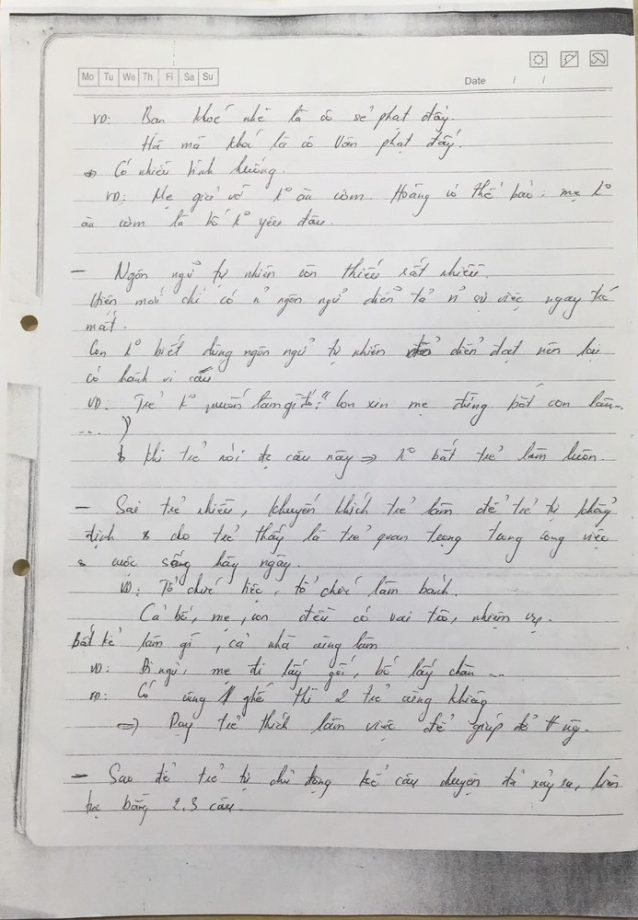 Mo Tu We Th Fi Sa Su
Date / /
VD: Ban khoé nhè là cô sẽ phạt đấy.
Há mà khoé là cô vẫn phạt đấy.
=> Có nhiều tình huống.
VD: Mẹ giả vờ k° ăn cơm. Hoàng có thể bảo: mẹ k°
ăn cơm là bố k° yêu đâu.
- Ngôn ngữ tự nhiên còn thiếu rất nhiều.
Hiện mới chỉ có n~ ngôn ngữ diễn tả n~ sự việc ngay trc
mắt.
Con k° biết dùng ngôn ngữ tự nhiên để diễn đạt nên lại
có hành vi cấu
VD: Trẻ k° muốn làm gì đó: "Con xin mẹ đừng bắt con làm...
...")
Khi trẻ nói đc câu này => k° bắt trẻ làm luôn.
- Sai trẻ nhiều, khuyến khích trẻ làm để trẻ tự khẳng
định & cho trẻ thấy là trẻ quan trọng trong công việc
& cuộc sống hàng ngày.
VD: Tổ chức tiệc, tổ chức làm bánh.
Cả bố, mẹ, con đều có vai trò, nhiệm vụ.
Bất kể làm gì, cả nhà cùng làm
VD: Đi ngủ, mẹ đi lấy gối, bố lấy chăn ...
VD: Có cùng 1 ghế thì 2 trẻ cùng khiêng
=> Dạy trẻ thích làm việc để giúp đỡ
- Sao để trẻ tự chủ động kể câu chuyện đã xảy ra, liên
tục bằng 2,3 câu.